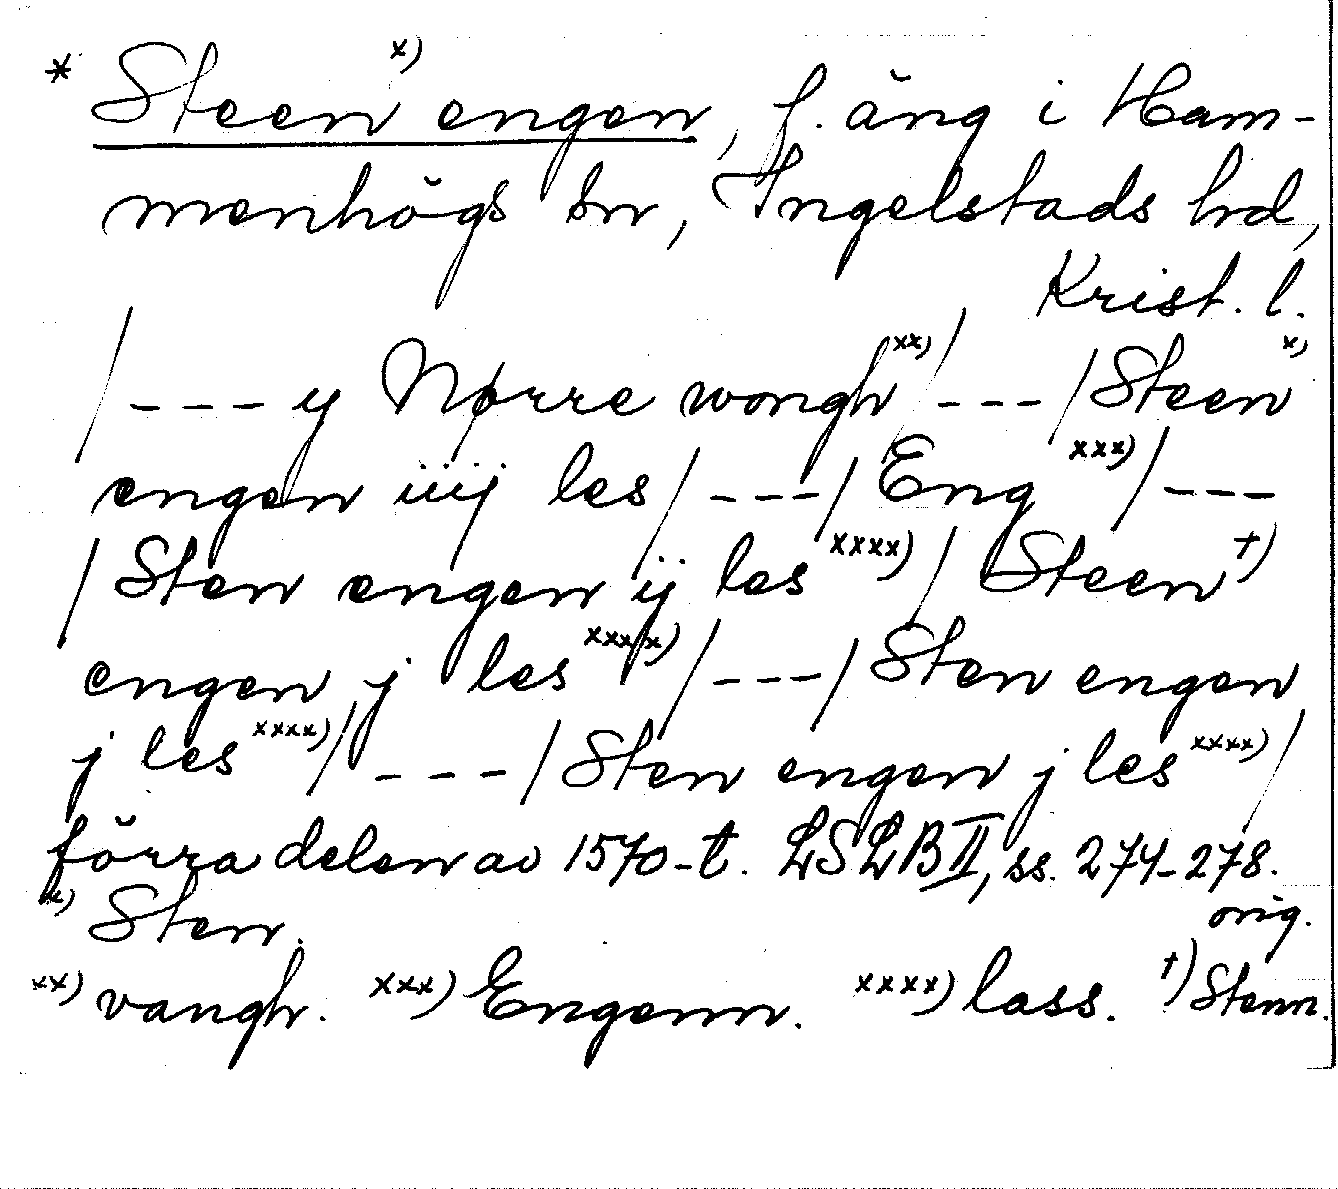 * Steen x) engen, f. äng i Ham-
menhögs sn, Ingelstads hrd,
Krist. l.
/---y Nørre wongh xx) /---/ Steen x)
engen iiij les /---/ Eng xxx) /---
/ Sten engen ij les xxxx) / Steen †)
engen j les xxxx) /---/ Sten engen
j les xxxx) /---/ Sten engen j les xxxx) /
förra delen av 1570-t. LSLB II, ss. 274-278.
orig.
x) Sten.
xx) vangh. xxx) Engenn. xxxx) lass. †) Stenn.